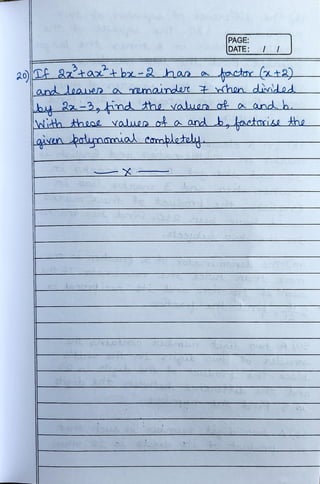 PAGE:
DATE: / /
20) If 2x³+ax²+bx-2 has a factor (x+2)
and leaves a remainder 7 when divided
by 2x-3, find the values of a and b.
With these values of a and b, factorise the
given polynomial completely.
—x—